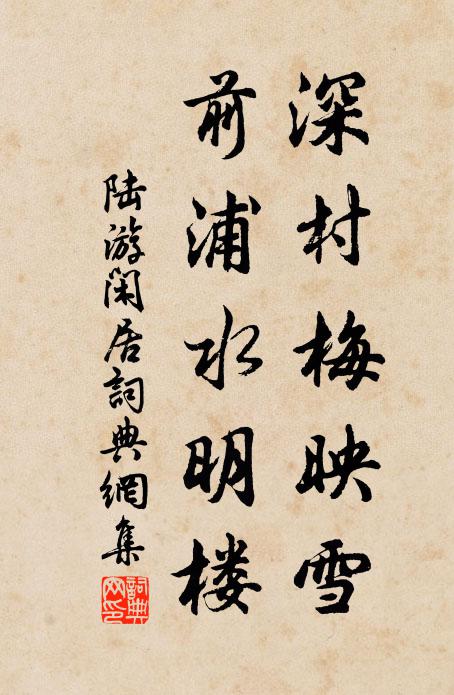 深村梅映雪
前浦水明楼
陆游闲居詞典網集
詞典网印